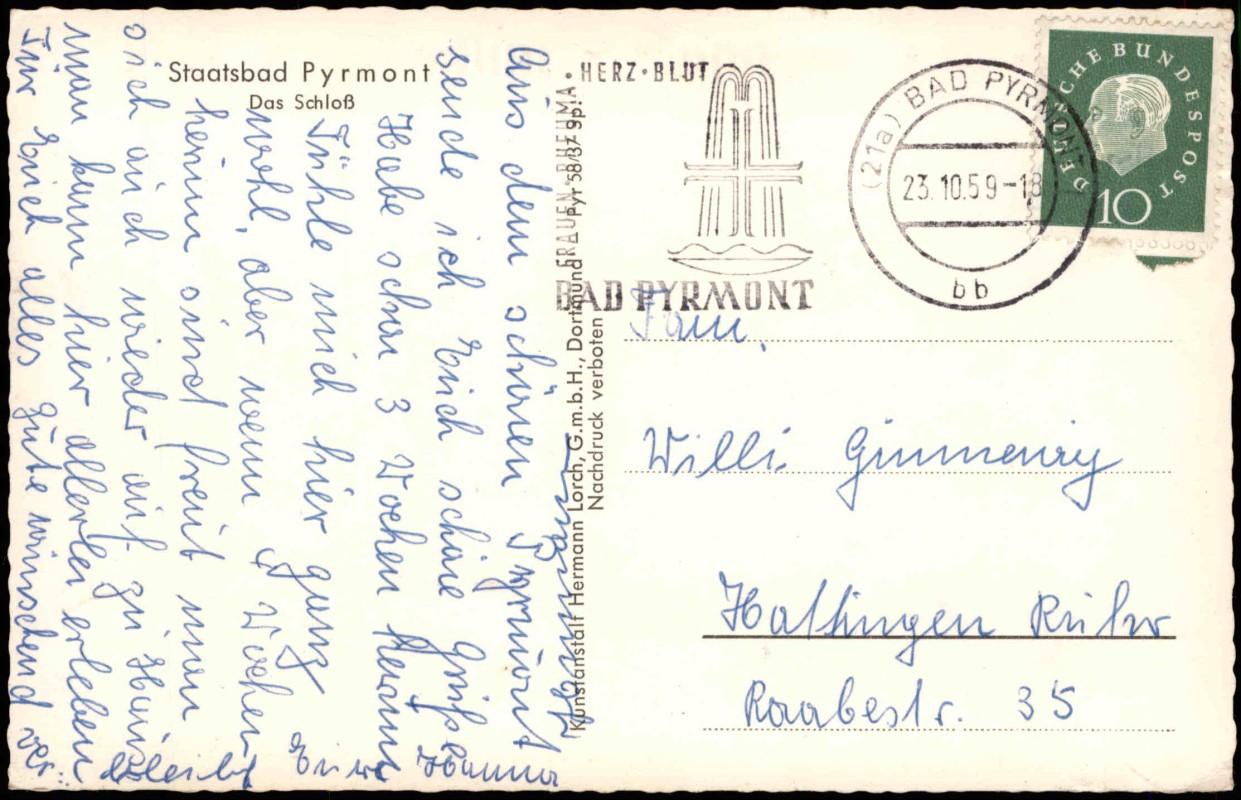 Staatsbad Pyrmont
Das Schloß
Aus dem schönen Pyrmont
sende ich Euch schöne Grüße
Habe schon 3 Wochen herum
Fühle mich hier ganz
wohl, aber wenn 4 Wochen
herum sind freut man
sich auch wieder auf zu Haus
man kann hier allerlei erleben
Für Euch alles gute wünschend ver:
bleibt Eure Hanna
Kunstanstalt Hermann Lorch, G.m.b.H., Dortmund Pyr 58/37 9p!
Nachdruck verboten
HERZ·BLUT
FRAUEN·RHEUMA
BAD PYRMONT
(21a) BAD PYRMONT
23.10.59-18
bb
DEUTSCHE BUNDESPOST
10
Fam.
Willi
Hattingen Ruhr
Raabestr. 35